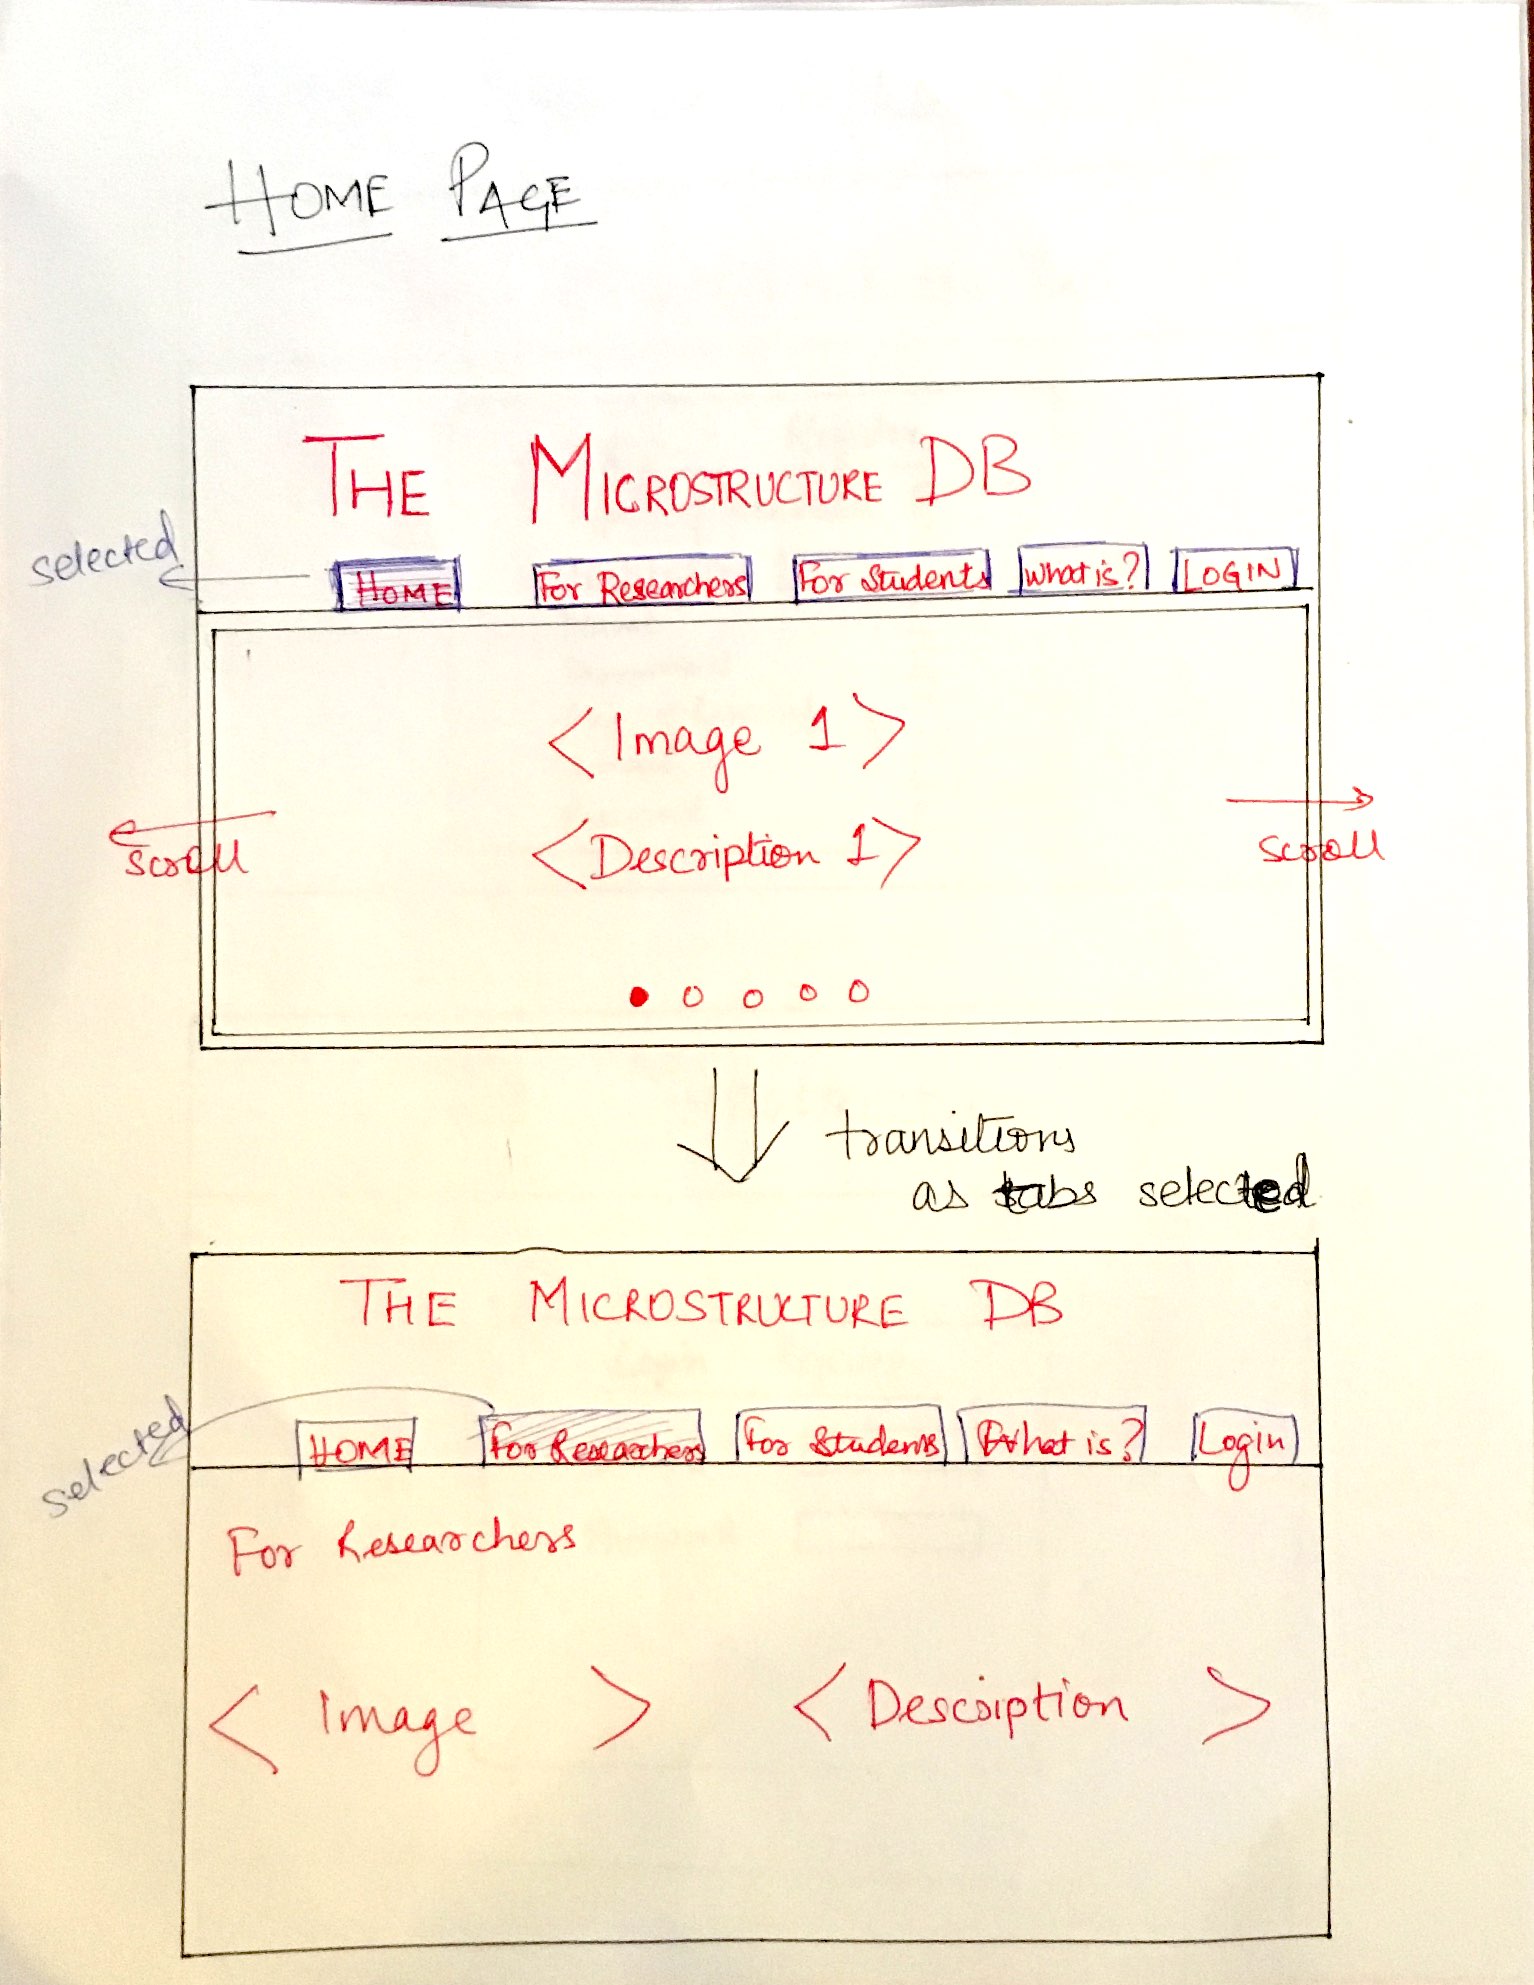 HOME PAGE
THE MICROSTRUCTURE DB
selected
HOME For Researchers For Students What is? LOGIN
<Image 1>
<Description 1>
scroll scroll
transitions
as tabs selected
THE MICROSTRUCTURE DB
selected
HOME For Researchers For Students What is? Login
For Researchers
< Image > < Description >